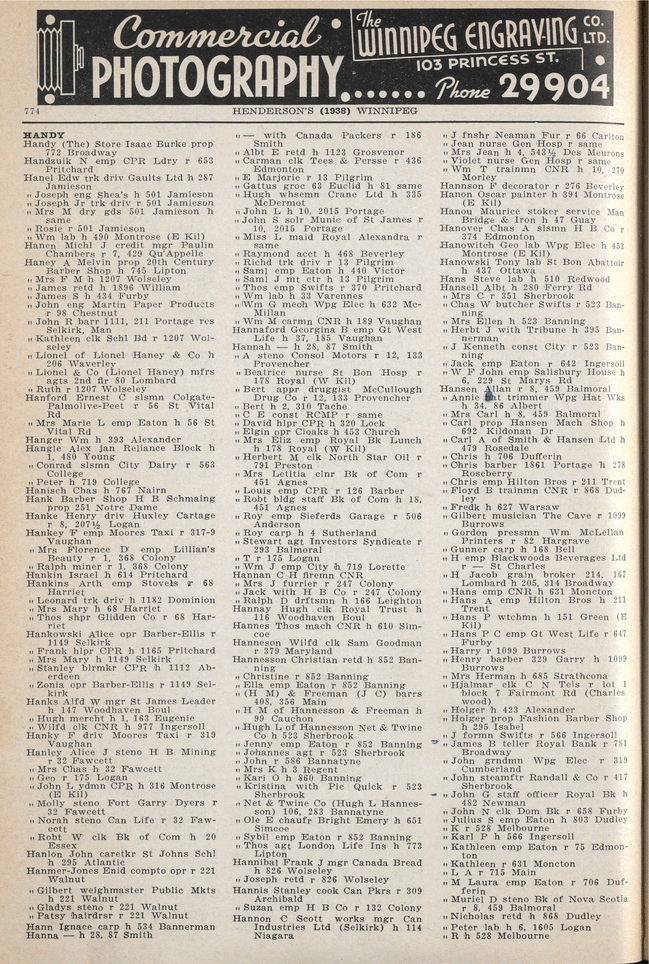 Commercial
PHOTOGRAPHY.......
The
WINNIPEG ENGRAVING CO. LTD.
103 PRINCESS ST.
Phone 29904
774
HENDERSON'S (1938) WINNIPEG
HANDY
Handy (The) Store Isaac Burke prop
772 Broadway
Handzuik N emp CPR Ldry r 653
Pritchard
Hanel Edw trk driv Gaults Ltd h 287
Jamieson
„ Joseph eng Shea's h 501 Jamieson
„ Joseph Jr trk driv r 501 Jamieson
„ Mrs M dry gds 501 Jamieson h
same
„ Rosie r 501 Jamieson
„ Wm lab h 490 Montrose (E Kil)
Hanen Michl J credit mgr Paulin
Chambers r 7, 429 Qu'Appelle
Haney A Melvin prop 20th Century
Barber Shop h 745 Lipton
„ Mrs F M h 1207 Wolseley
„ James retd h 1896 William
„ James S h 434 Furby
„ John eng Martin Paper Products
r 98 Chestnut
„ John R barr 1111, 211 Portage res
Selkirk, Man
„ Kathleen clk Schl Bd r 1207 Wol-
seley
„ Lionel of Lionel Haney & Co h
206 Waverley
„ Lionel & Co (Lionel Haney) mfrs
agts 2nd flr 80 Lombard
„ Ruth r 1207 Wolseley
Hanford Ernest C slsmn Colgate-
Palmolive-Peet r 56 St Vital
Rd
„ Mrs Marie L emp Eaton h 56 St
Vital Rd
Hanger Wm h 393 Alexander
Hangle Alex jan Reliance Block h
1, 480 Young
„ Conrad slsmn City Dairy r 563
College
„ Peter h 719 College
Hanisch Chas h 767 Nairn
Hank Barber Shop H B Schmaing
prop 251 Notre Dame
Hanke Henry driv Huxley Cartage
r 8, 207½ Logan
Hankey F emp Moores Taxi r 317-9
Vaughan
„ Mrs Florence D emp Lillian's
Beauty r 1, 368 Colony
„ Ralph miner r 1, 368 Colony
Hankin Israel h 614 Pritchard
Hankins Arth emp Stovels r 68
Harriet
„ Leonard trk driv h 1182 Dominion
„ Mrs Mary h 68 Harriet
„ Thos shpr Glidden Co r 68 Har-
riet
Hankowski Alice opr Barber-Ellis r
1149 Selkirk
„ Frank hlpr CPR h 1165 Pritchard
„ Mrs Mary h 1149 Selkirk
„ Stanley blrmkr CPR h 1112 Ab-
erdeen
„ Zonia opr Barber-Ellis r 1149 Sel-
kirk
Hanks Alfd W mgr St James Leader
h 147 Woodhaven Boul
„ Hugh mercht h 1, 163 Eugenie
„ Wilfd clk CNR h 977 Ingersoll
Hanky F driv Moores Taxi r 319
Vaughan
Hanley Alice J steno H B Mining
r 32 Fawcett
„ Mrs Chas h 32 Fawcett
„ Geo r 175 Logan
„ John L ydmn CPR h 316 Montrose
(E Kil)
„ Molly steno Fort Garry Dyers r
32 Fawcett
„ Norah steno Can Life r 32 Faw-
cett
„ Robt W clk Bk of Com h 20
Essex
Hanlon John caretkr St Johns Schl
h 295 Atlantic
Hanmer-Jones Enid compto opr r 221
Walnut
„ Gilbert weighmaster Public Mkts
h 221 Walnut
„ Gladys steno r 221 Walnut
„ Patsy hairdrsr r 221 Walnut
Hann Ignace carp h 534 Bannerman
Hanna — h 28, 87 Smith
„ — with Canada Packers r 186
Smith
„ Albt E retd h 1123 Grosvenor
„ Carman clk Tees & Persse r 436
Edmonton
„ E Marjorie r 13 Pilgrim
„ Gattus groc 63 Euclid h 81 same
„ Hugh whsemn Crane Ltd h 335
McDermot
„ John L h 10, 2015 Portage
„ John S solr Munic of St James r
10, 2015 Portage
„ Miss L maid Royal Alexandra r
same
„ Raymond acct h 468 Beverley
„ Richd trk driv r 13 Pilgrim
„ Saml emp Eaton h 440 Victor
„ Saml J mt ctr h 13 Pilgrim
„ Thos emp Swifts r 370 Pritchard
„ Wm lab h 33 Varennes
„ Wm G mech Wpg Elec h 632 Mc-
Millan
„ Wm M carmn CNR h 189 Vaughan
Hannaford Georgina B emp Gt West
Life h 37, 185 Vaughan
Hannah — h 28, 87 Smith
„ A steno Consol Motors r 12, 133
Provencher
„ Beatrice nurse St Bon Hosp r
178 Royal (W Kil)
„ Bert appr druggist McCullough
Drug Co r 12, 133 Provencher
„ Bert h 2, 310 Tache
„ C E const RCMP r same
„ David hlpr CPR h 320 Lock
„ Elgin opr Cloaks h 453 Church
„ Mrs Eliz emp Royal Bk Lunch
h 178 Royal (W Kil)
„ Herbert M clk North Star Oil r
791 Preston
„ Mrs Letitia clnr Bk of Com r
451 Agnes
„ Louis emp CPR r 126 Barber
„ Robt bldg staff Bk of Com h 18,
451 Agnes
„ Roy emp Sieferds Garage r 506
Anderson
„ Roy carp h 4 Sutherland
„ Stewart agt Investors Syndicate r
293 Balmoral
„ T r 175 Logan
„ Wm J emp City h 719 Lorette
Hannan C H firemn CNR
„ Mrs J furrier r 247 Colony
„ Jack with H B Co r 247 Colony
„ Ralph D drftsmn h 166 Leighton
Hannay Hugh clk Royal Trust h
116 Woodhaven Boul
Hannes Thos mach CNR h 610 Sim-
coe
Hanneson Wilfd clk Sam Goodman
r 379 Maryland
Hannesson Christian retd h 852 Ban-
ning
„ Christine r 852 Banning
„ Ella emp Eaton r 852 Banning
„ (H M) & Freeman (J C) barrs
408, 356 Main
„ H M of Hannesson & Freeman h
99 Cauchon
„ Hugh L of Hannesson Net & Twine
Co h 523 Sherbrook
„ Jenny emp Eaton r 852 Banning
„ Johannes agt r 523 Sherbrook
„ John r 586 Bannatyne
„ Mrs K h 3 Regent
„ Karl O h 860 Banning
„ Kristina with Pic Quick r 523
Sherbrook
„ Net & Twine Co (Hugh L Hannes-
son) 106, 283 Bannatyne
„ Ole E chaufr Bright Emery h 651
Simcoe
„ Sybil emp Eaton r 852 Banning
„ Thos agt London Life Ins h 773
Lipton
Hannibal Frank J mgr Canada Bread
h 826 Wolseley
„ Joseph retd r 826 Wolseley
Hannis Stanley cook Can Pkrs r 309
Archibald
„ Suzan emp H B Co r 132 Colony
Hannon C Scott works mgr Can
Industries Ltd (Selkirk) h 114
Niagara
„ J fnshr Neaman Fur r 66 Carlton
„ Jean nurse Gen Hosp r same
„ Mrs Jean h 4, 543½ Des Meurons
„ Violet nurse Gen Hosp r same
„ Wm T trainmn CNR h 10, 270
Morley
Hannson F decorator r 276 Beverley
Hanon Oscar painter h 394 Montrose
(E Kil)
Hanou Maurice stoker service Man
Bridge & Iron h 47 Guay
Hanover Chas A slsmn H B Co r
374 Edmonton
Hanowitch Geo lab Wpg Elec h 453
Montrose (E Kil)
Hanowski Tony lab St Bon Abattoir
h 437 Ottawa
Hans Steve lab h 510 Redwood
Hansell Albt h 280 Ferry Rd
„ Mrs C r 351 Sherbrook
„ Chas W butcher Swifts r 523 Ban-
ning
„ Mrs Ellen h 523 Banning
„ Herbt J with Tribune h 395 Ban-
nerman
„ J Kenneth const City r 523 Ban-
ning
„ Jack emp Eaton r 642 Ingersoll
„ W F John emp Salisbury House h
6, 229 St Marys Rd
Hansen Allan r 8, 459 Balmoral
„ Annie hat trimmer Wpg Hat Wks
h 34, 86 Albert
„ Mrs Carl h 8, 459 Balmoral
„ Carl prop Hansen Mach Shop h
692 Kildonan Dr
„ Carl A of Smith & Hansen Ltd h
479 Rosedale
„ Chris h 706 Dufferin
„ Chris barber 1861 Portage h 278
Roseberry
„ Chris emp Hilton Bros r 211 Trent
„ Floyd B trainmn CNR r 868 Dud-
ley
„ Fredk h 627 Warsaw
„ Gilbert musician The Cave r 1099
Burrows
„ Gordon pressmn Wm McLellan
Printers r 82 Hargrave
„ Gunner carp h 168 Bell
„ H emp Blackwoods Beverages Ltd
r — St Charles
„ H Jacob grain broker 214, 167
Lombard h 205, 314 Broadway
„ Hans emp CNR h 631 Moncton
„ Hans A emp Hilton Bros h 211
Trent
„ Hans P wtchmn h 151 Green (E
Kil)
„ Hans P C emp Gt West Life r 647
Furby
„ Harry r 1099 Burrows
„ Henry barber 329 Garry h 1099
Burrows
„ Mrs Herman h 685 Strathcona
„ Hjalmar clk C N Tels r lot 1
block 7 Fairmont Rd (Charles
wood)
„ Holger h 423 Alexander
„ Holger prop Fashion Barber Shop
h 295 Isabel
„ J formn Swifts r 566 Ingersoll
„ James B teller Royal Bank r 781
Broadway
„ John grndmn Wpg Elec r 319
Cumberland
„ John steamftr Randall & Co r 417
Sherbrook
„ John G staff officer Royal Bk h
482 Newman
„ John N clk Dom Bk r 658 Furby
„ Julius S emp Eaton h 803 Dudley
„ K r 528 Melbourne
„ Karl P h 566 Ingersoll
„ Kathleen emp Eaton r 75 Edmon-
ton
„ Kathleen r 631 Moncton
„ L A r 715 Main
„ M Laura emp Eaton r 706 Duf-
ferin
„ Muriel D steno Bk of Nova Scotia
r 8, 459 Balmoral
„ Nicholas retd h 868 Dudley
„ Peter lab h 6, 1605 Logan
„ R h 528 Melbourne